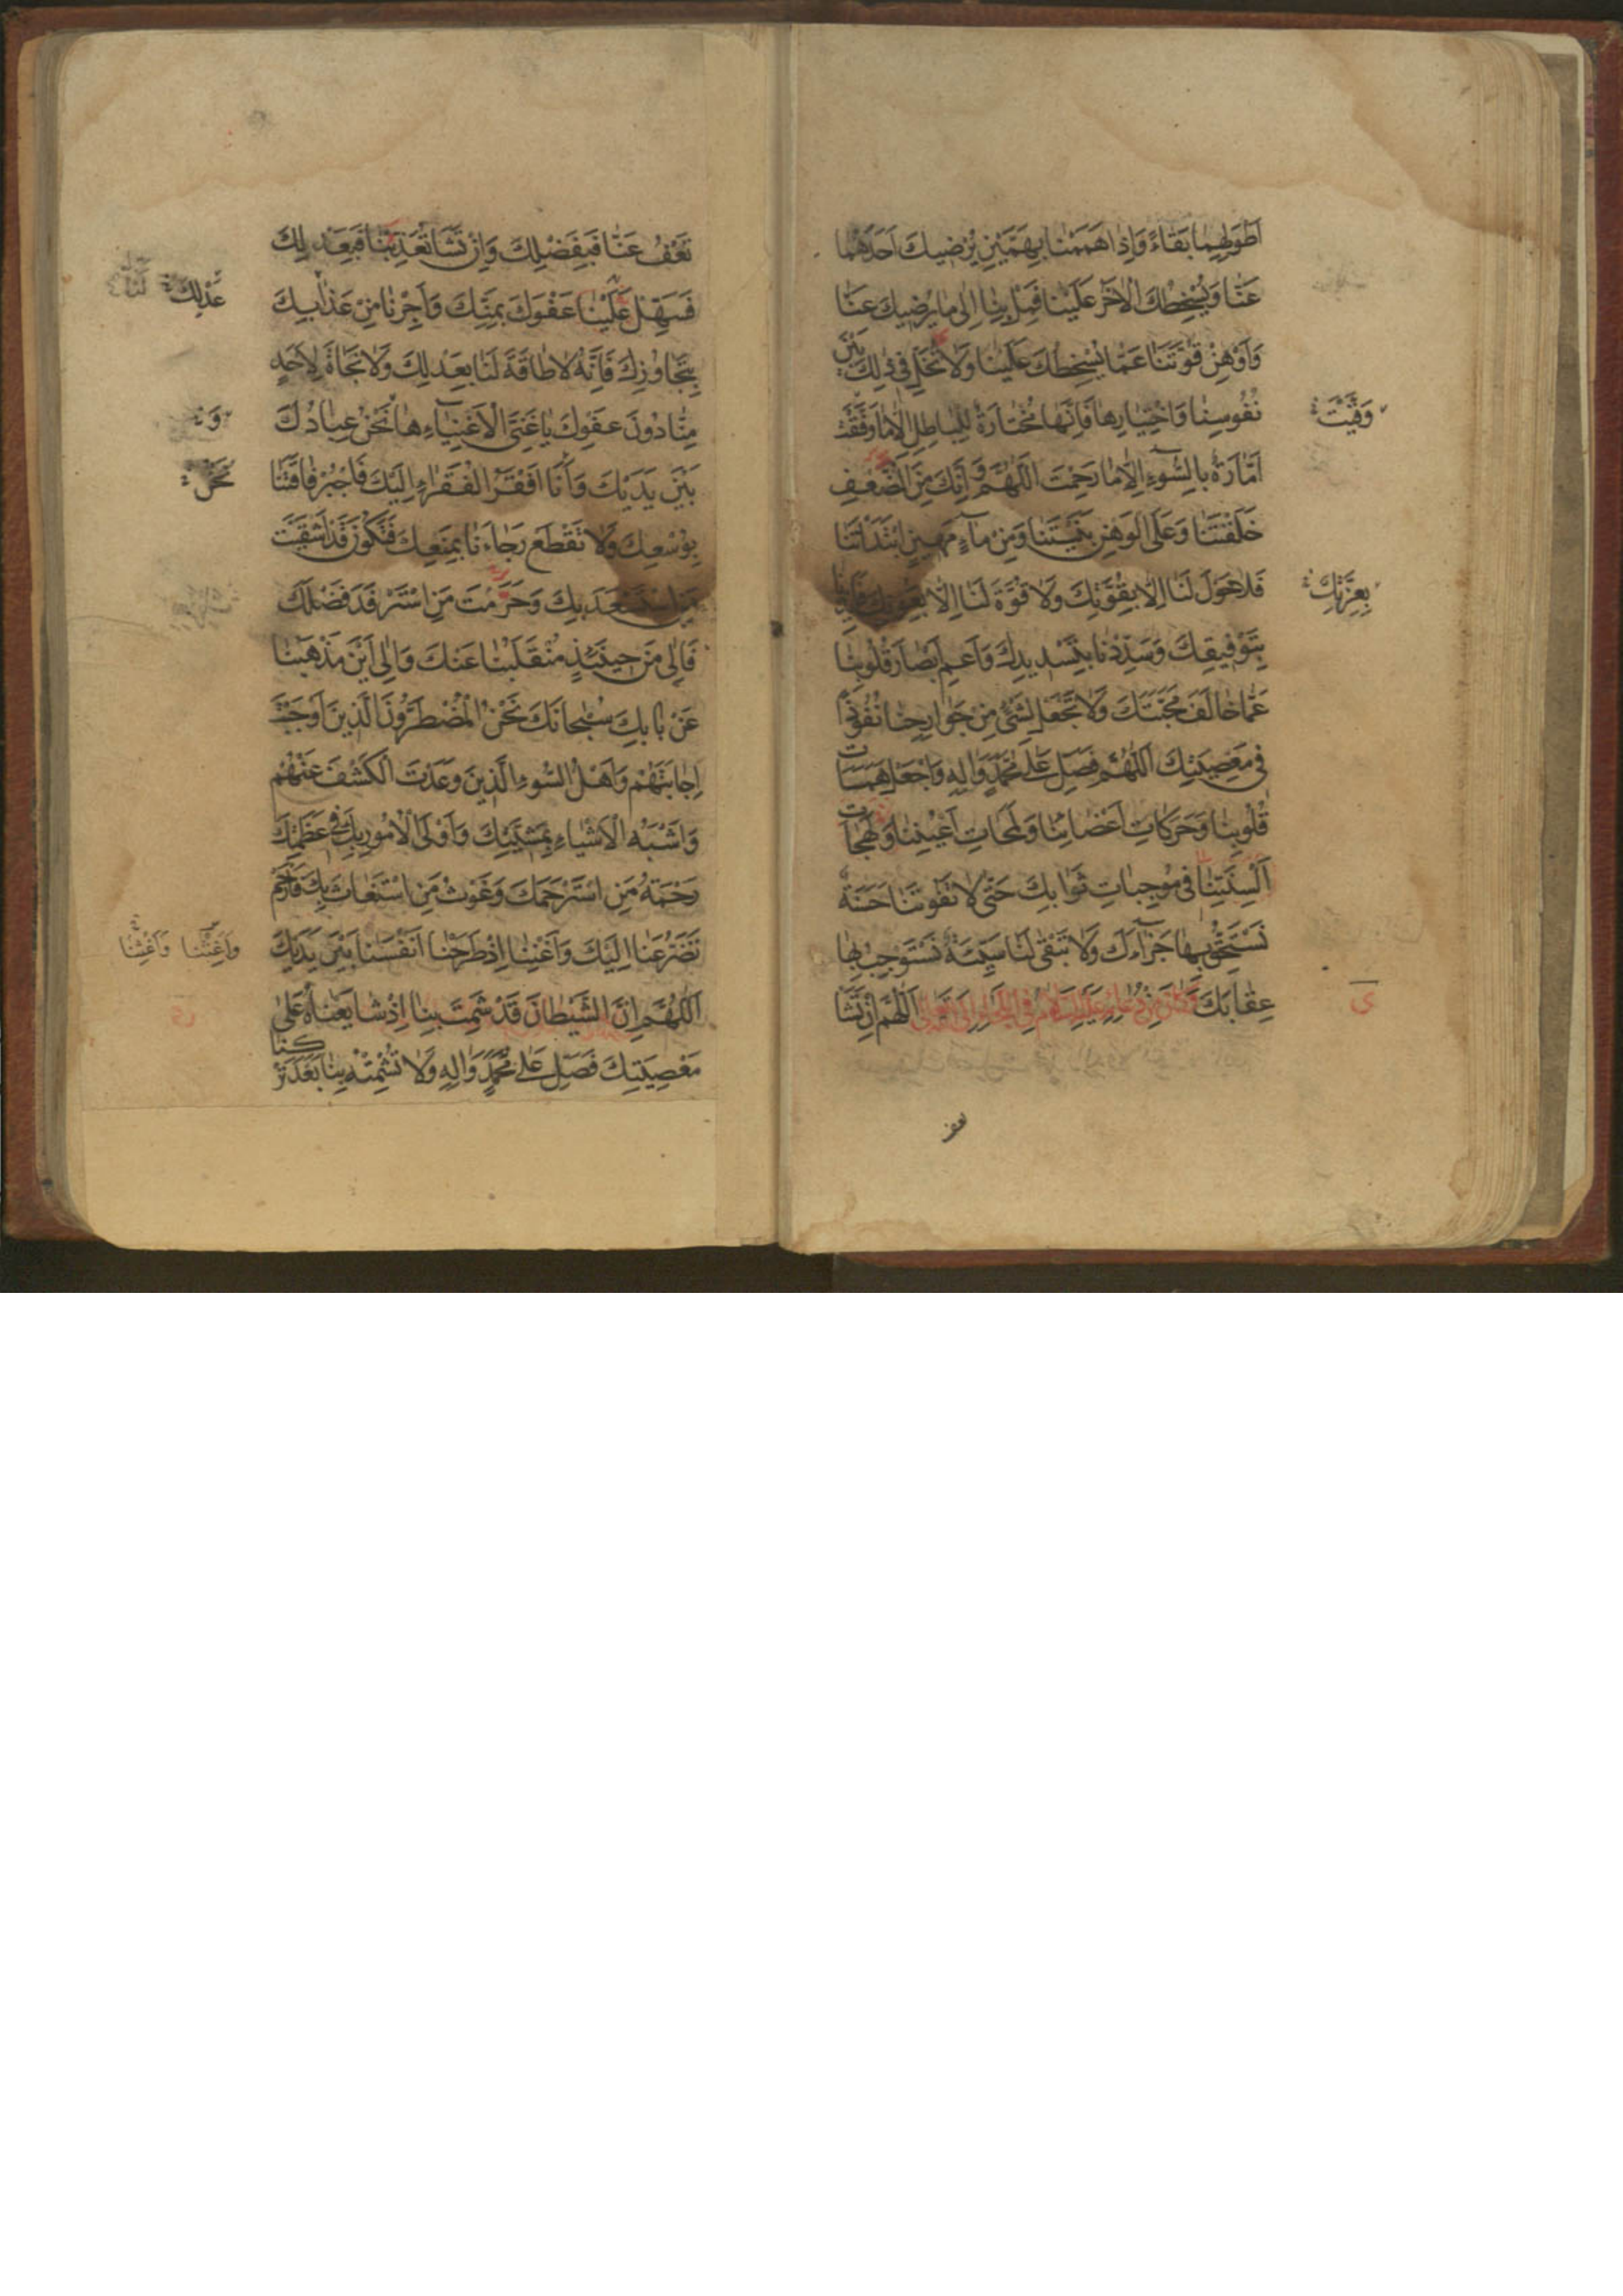 اَطْوَلِهِما بَقاءً وَاِذا هَمَمْنا بِهَمَّيْنِ يُرْضيكَ اَحَدُهُما
عَنّا وَيُسْخِطُكَ الْاٰخَرُ عَلَيْنا فَمِلْ بِنا اِلى ما يُرْضيكَ عَنّا
وَاَوْهِنْ قُوَّتَنا عَمّا يُسْخِطُكَ عَلَيْنا وَلا تُخَلِّ فى ذٰلِكَ بَيْنَ
نُفُوسِنا وَاخْتِيارِها فَاِنَّها مُخْتارَةٌ لِلْباطِلِ اِلّا ما وَفَّقْتَ
وَقَيْتَ
اَمّارَةٌ بِالسُّوءِ اِلّا ما رَحِمْتَ اَللّٰهُمَّ وَاِنَّكَ مِنَ الضَّعْفِ
خَلَقْتَنا وَعَلَى الْوَهْنِ بَنَيْتَنا وَمِنْ ماءٍ مَهينٍ ابْتَدَاْتَنا
فَلا حَوْلَ لَنا اِلّا بِقُوَّتِكَ وَلا قُوَّةَ لَنا اِلّا بِعَوْنِكَ فَاَيِّدْنا
بِعِزَّتِكَ
بِتَوْفيقِكَ وَسَدِّدْنا بِتَسْديدِكَ وَاَعْمِ اَبْصارَ قُلُوبِنا
عَمّا خالَفَ مَحَبَّتَكَ وَلا تَجْعَلْ لِشَىْءٍ مِنْ جَوارِحِنا نُفُوذًا
فى مَعْصِيَتِكَ اَللّٰهُمَّ فَصَلِّ عَلى مُحَمَّدٍ وَاٰلِهِ وَاجْعَلْ هَمَساتِ
قُلُوبِنا وَحَرَكاتِ اَعْضائِنا وَلَمَحاتِ اَعْيُنِنا وَلَهَجاتِ
اَلْسِنَتِنا فى مُوجِباتِ ثَوابِكَ حَتّى لا تَفُوتَنا حَسَنَةٌ
نَسْتَحِقُّ بِها جَزاءَكَ وَلا تَبْقى لَنا سَيِّئَةٌ نَسْتَوْجِبُ بِها
عِقابَكَ وَكانَ مِنْ دُعائِهِ عَلَيْهِ السَّلامُ فِى اللَّجَاِ اِلَى اللهِ تَعالى اَللّٰهُمَّ اِنْ تَشَاْ
تعف
تَعْفُ عَنّا فَبِفَضْلِكَ وَاِنْ تَشَاْ تُعَذِّبْنا فَبِعَدْلِكَ
عَدْلِكَ
فَسَهِّلْ عَلَيْنا عَفْوَكَ بِمَنِّكَ وَاَجِرْنا مِنْ عَذابِكَ
بِتَجاوُزِكَ فَاِنَّهُ لا طاقَةَ لَنا بِعَدْلِكَ وَلا نَجاةَ لِاَحَدٍ
مِنّا دُونَ عَفْوِكَ يا غَنِىَّ الْاَغْنِياءِ ها نَحْنُ عِبادُكَ
وَ
بَيْنَ يَدَيْكَ وَاَنَا اَفْقَرُ الْفُقَراءِ اِلَيْكَ فَاجْبُرْ فاقَتَنا
نَحْنُ
بِوُسْعِكَ وَلا تَقْطَعْ رَجاءَنا بِمَنْعِكَ فَتَكُونَ قَدْ اَشْقَيْتَ
مَنِ اسْتَسْعَدَ بِكَ وَحَرَمْتَ مَنِ اسْتَرْفَدَ فَضْلَكَ
فَاِلى مَنْ حينَئِذٍ مُنْقَلَبُنا عَنْكَ وَاِلى اَيْنَ مَذْهَبُنا
عَنْ بابِكَ سُبْحانَكَ نَحْنُ الْمُضْطَرُّونَ الَّذينَ اَوْجَبْتَ
اِجابَتَهُمْ وَاَهْلُ السُّوءِ الَّذينَ وَعَدْتَ الْكَشْفَ عَنْهُمْ
وَاَشْبَهُ الْاَشْياءِ بِمَشِيَّتِكَ وَاَوْلَى الْاُمُورِ بِكَ فى عَظَمَتِكَ
رَحْمَةُ مَنِ اسْتَرْحَمَكَ وَغَوْثُ مَنِ اسْتَغاثَ بِكَ فَارْحَمْ
تَضَرُّعَنا اِلَيْكَ وَاَغْنِنا اِذْ طَرَحْنا اَنْفُسَنا بَيْنَ يَدَيْكَ
وَاَغِثْنا وَاَغِثْنا
اَللّٰهُمَّ اِنَّ الشَّيْطانَ قَدْ شَمِتَ بِنا اِذْ شايَعْناهُ عَلى
مَعْصِيَتِكَ فَصَلِّ عَلى مُحَمَّدٍ وَاٰلِهِ وَلا تُشْمِتْهُ بِنا بَعْدَ تَرْكِنا